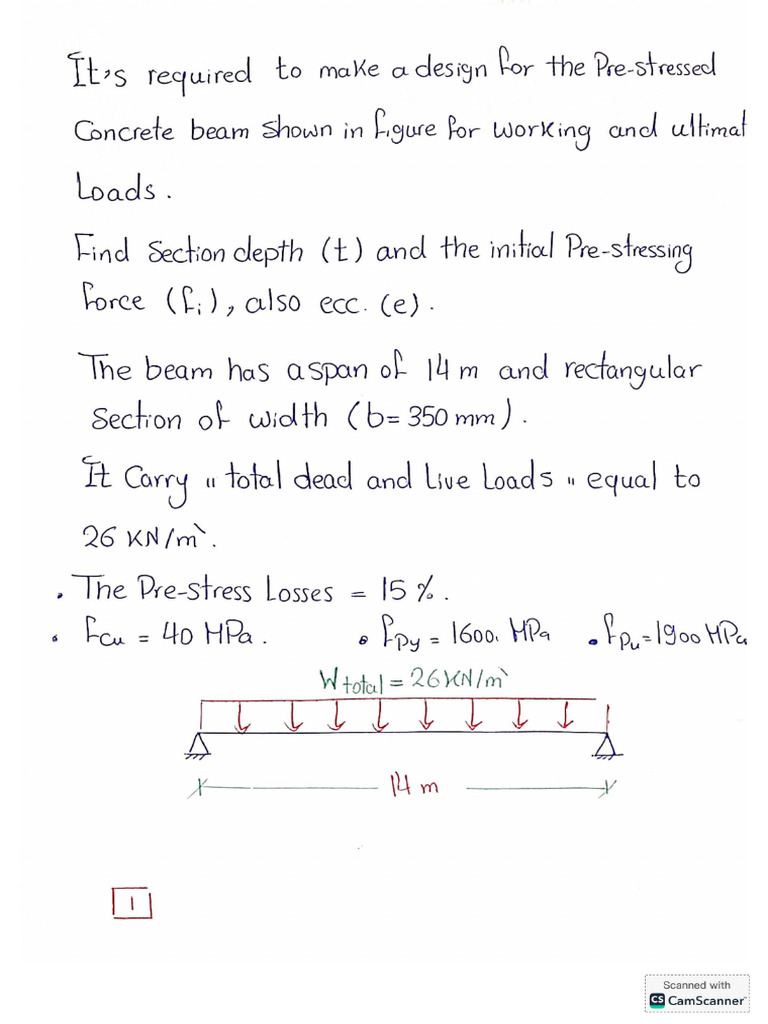 It's required to make a design for the Pre-stressed
Concrete beam shown in figure for working and ultimat
Loads.
Find Section depth (t) and the initial Pre-stressing
force (fi), also ecc. (e).
The beam has a span of 14 m and rectangular
Section of width (b=350 mm).
It Carry "total dead and Live Loads" equal to
26 KN/m`.
• The Pre-stress Losses = 15 %.
• fcu = 40 MPa. • fpy = 1600. MPa • fpu=1900 MPa
Wtotal = 26 KN/m`
14 m
1
Scanned with
CS CamScanner